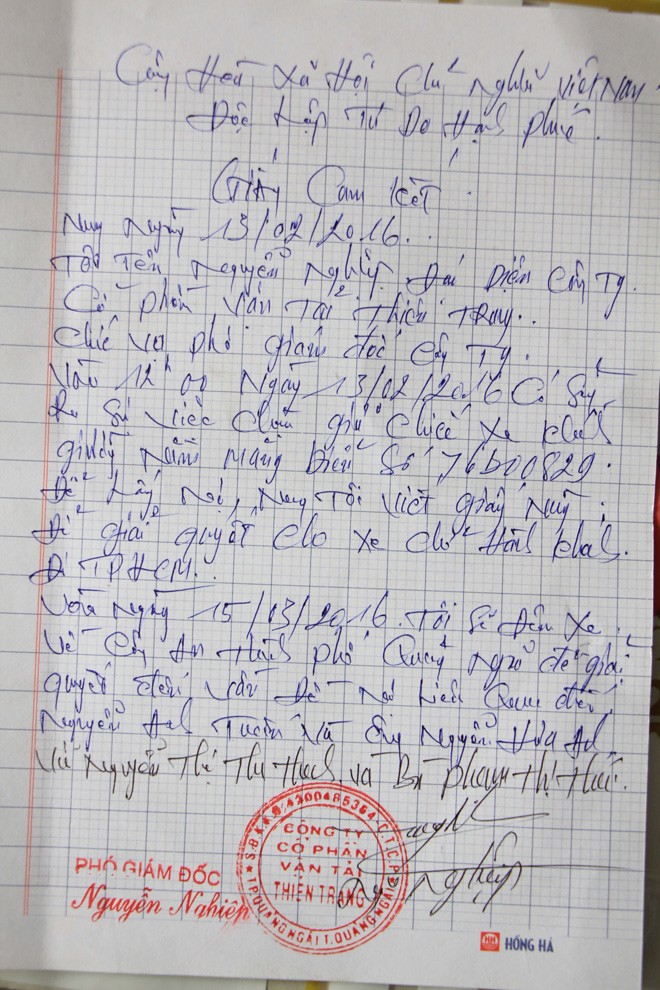 Cộng Hoà Xã Hội Chủ Nghĩa Việt Nam
Độc Lập Tự Do Hạnh phúc.
Giấy Cam Kết.
Nay Ngày 13/02/2016.
Tôi Tên Nguyễn Nghiệp Đại Diện Công Ty
Cổ phần Vận Tải Thiên Trang.
Chức vụ phó giám đốc Công Ty.
Vào 12h00 Ngày 13/02/2016 Có
Ra Sự việc giữ chiếc xe khách
mang Biển Số 76b00829.
Để Nay Tôi viết giấy Này
Để giải quyết Cho xe chở Hành khách
Đi TPHCM.
Ngày 15/03/2016 Tôi Sẽ Đến xe
Về Công An Thành phố Quảng Ngãi để giải
quyết đến vấn Đề Liên Quan đến
Nguyễn Anh Tuấn Và Nguyễn
Và Nguyễn Thị Thu và Bà Phạm Thị
Nghiệp
S.Đ.K.K.D:4300485364-C.T.C.P
CÔNG TY
CỔ PHẦN
VẬN TẢI
THIÊN TRANG
T.P QUẢNG NGÃI T.QUẢNG NGÃI
PHÓ GIÁM ĐỐC
Nguyễn Nghiệp
HH HỒNG HÀ